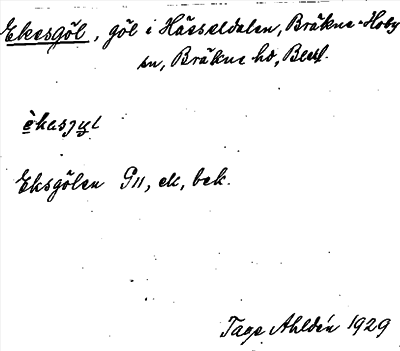 Ekesgöl, göl i Hässeldalen, Bräkne-Hoby
sn, Bräkne hd, Blek.
èkasjɣl
Eksgölen G11, ek, bek.
Tage Ahldén 1929